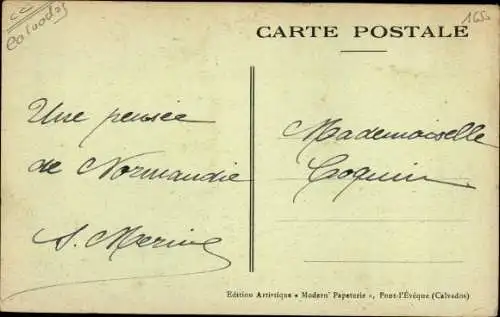 Calvados
165
CARTE POSTALE
Une pensée
de Normandie
Mademoiselle
Coquin
Edition Artistique « Modern' Papeterie », Pont-l'Évêque (Calvados)